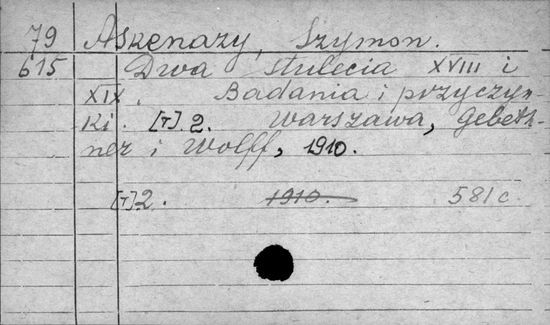 79 Askenazy, Szymon.
615 Dwa stulecia XVIII i
XIX. Badania i przyczyn-
ki. [T]. 2. Warszawa, Gebeth-
ner i Wolff, 1910.
[T]. 2. 1910. 581 c.